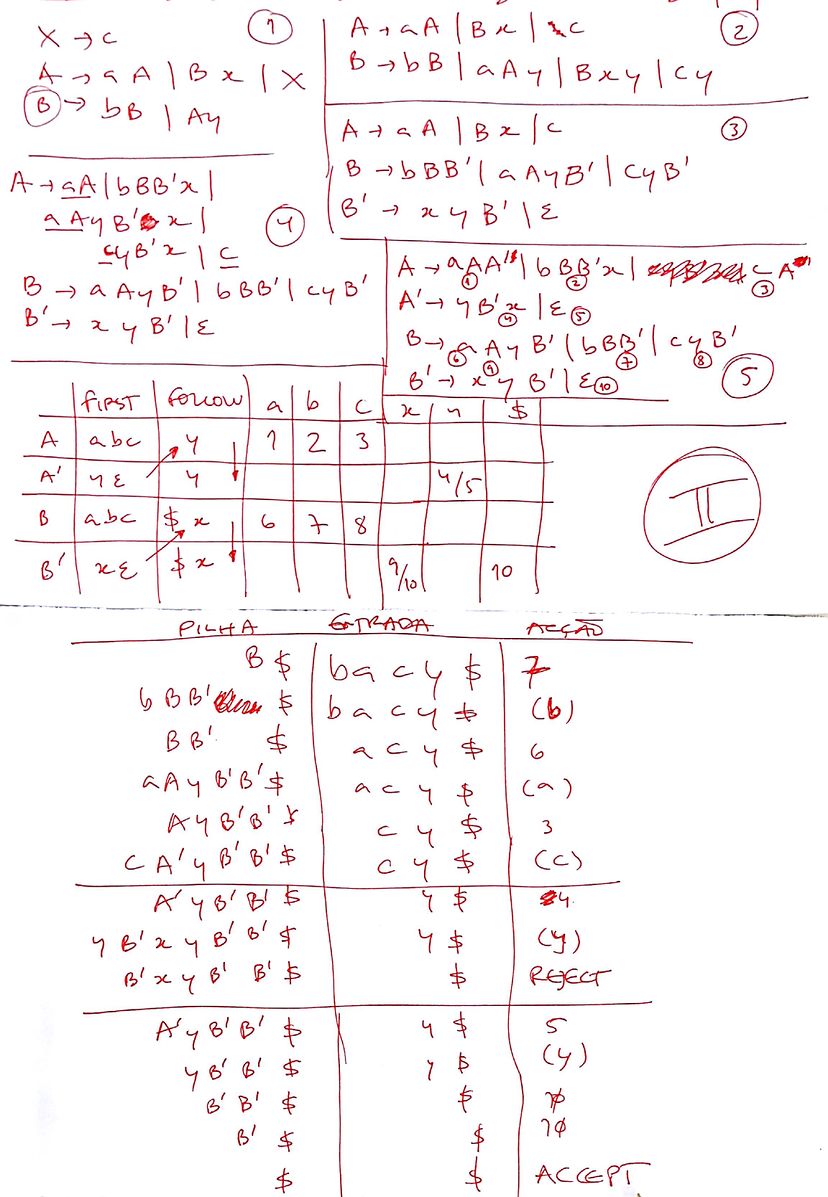 X → c ①
A → aA | Bx | X
B → bB | Ay
A → aA | Bx | c ②
B → bB | aAy | Bxy | cy
A → aA | Bx | c ③
B → bBB' | aAyB' | cyB'
B' → xyB' | ε
A → aA | bBB'x |
aAyB'x | ④
cyB'x | c
B → aAyB' | bBB' | cyB'
B' → xyB' | ε
A → aAA' | bBB'x | cA'
① ② ③
A' → yB'x | ε ⑤
④
B → aAyB' | bBB' | cyB'
⑥ ⑦ ⑧
⑨
B' → xyB' | ε ⑩ ⑤
FIRST FOLLOW a b c x y $
A abc y 1 2 3
A' yε y 4/5
B abc $ x 6 7 8
B' xε $ x 9/10 10
II
PILHA ENTRADA ACÇÃO
B $ bacy $ 7
bBB' $ bacy $ (b)
BB' $ acy $ 6
aAyB'B'$ acy $ (a)
AyB'B'$ cy $ 3
cA'yB'B'$ cy $ (c)
A'yB'B'$ y $ 4
yB'xyB'B'$ y $ (y)
B'xyB'B'$ $ REJECT
A'yB'B'$ y $ 5
yB'B'$ y $ (y)
B'B'$ $ 10
B'$ $ 10
$ $ ACCEPT